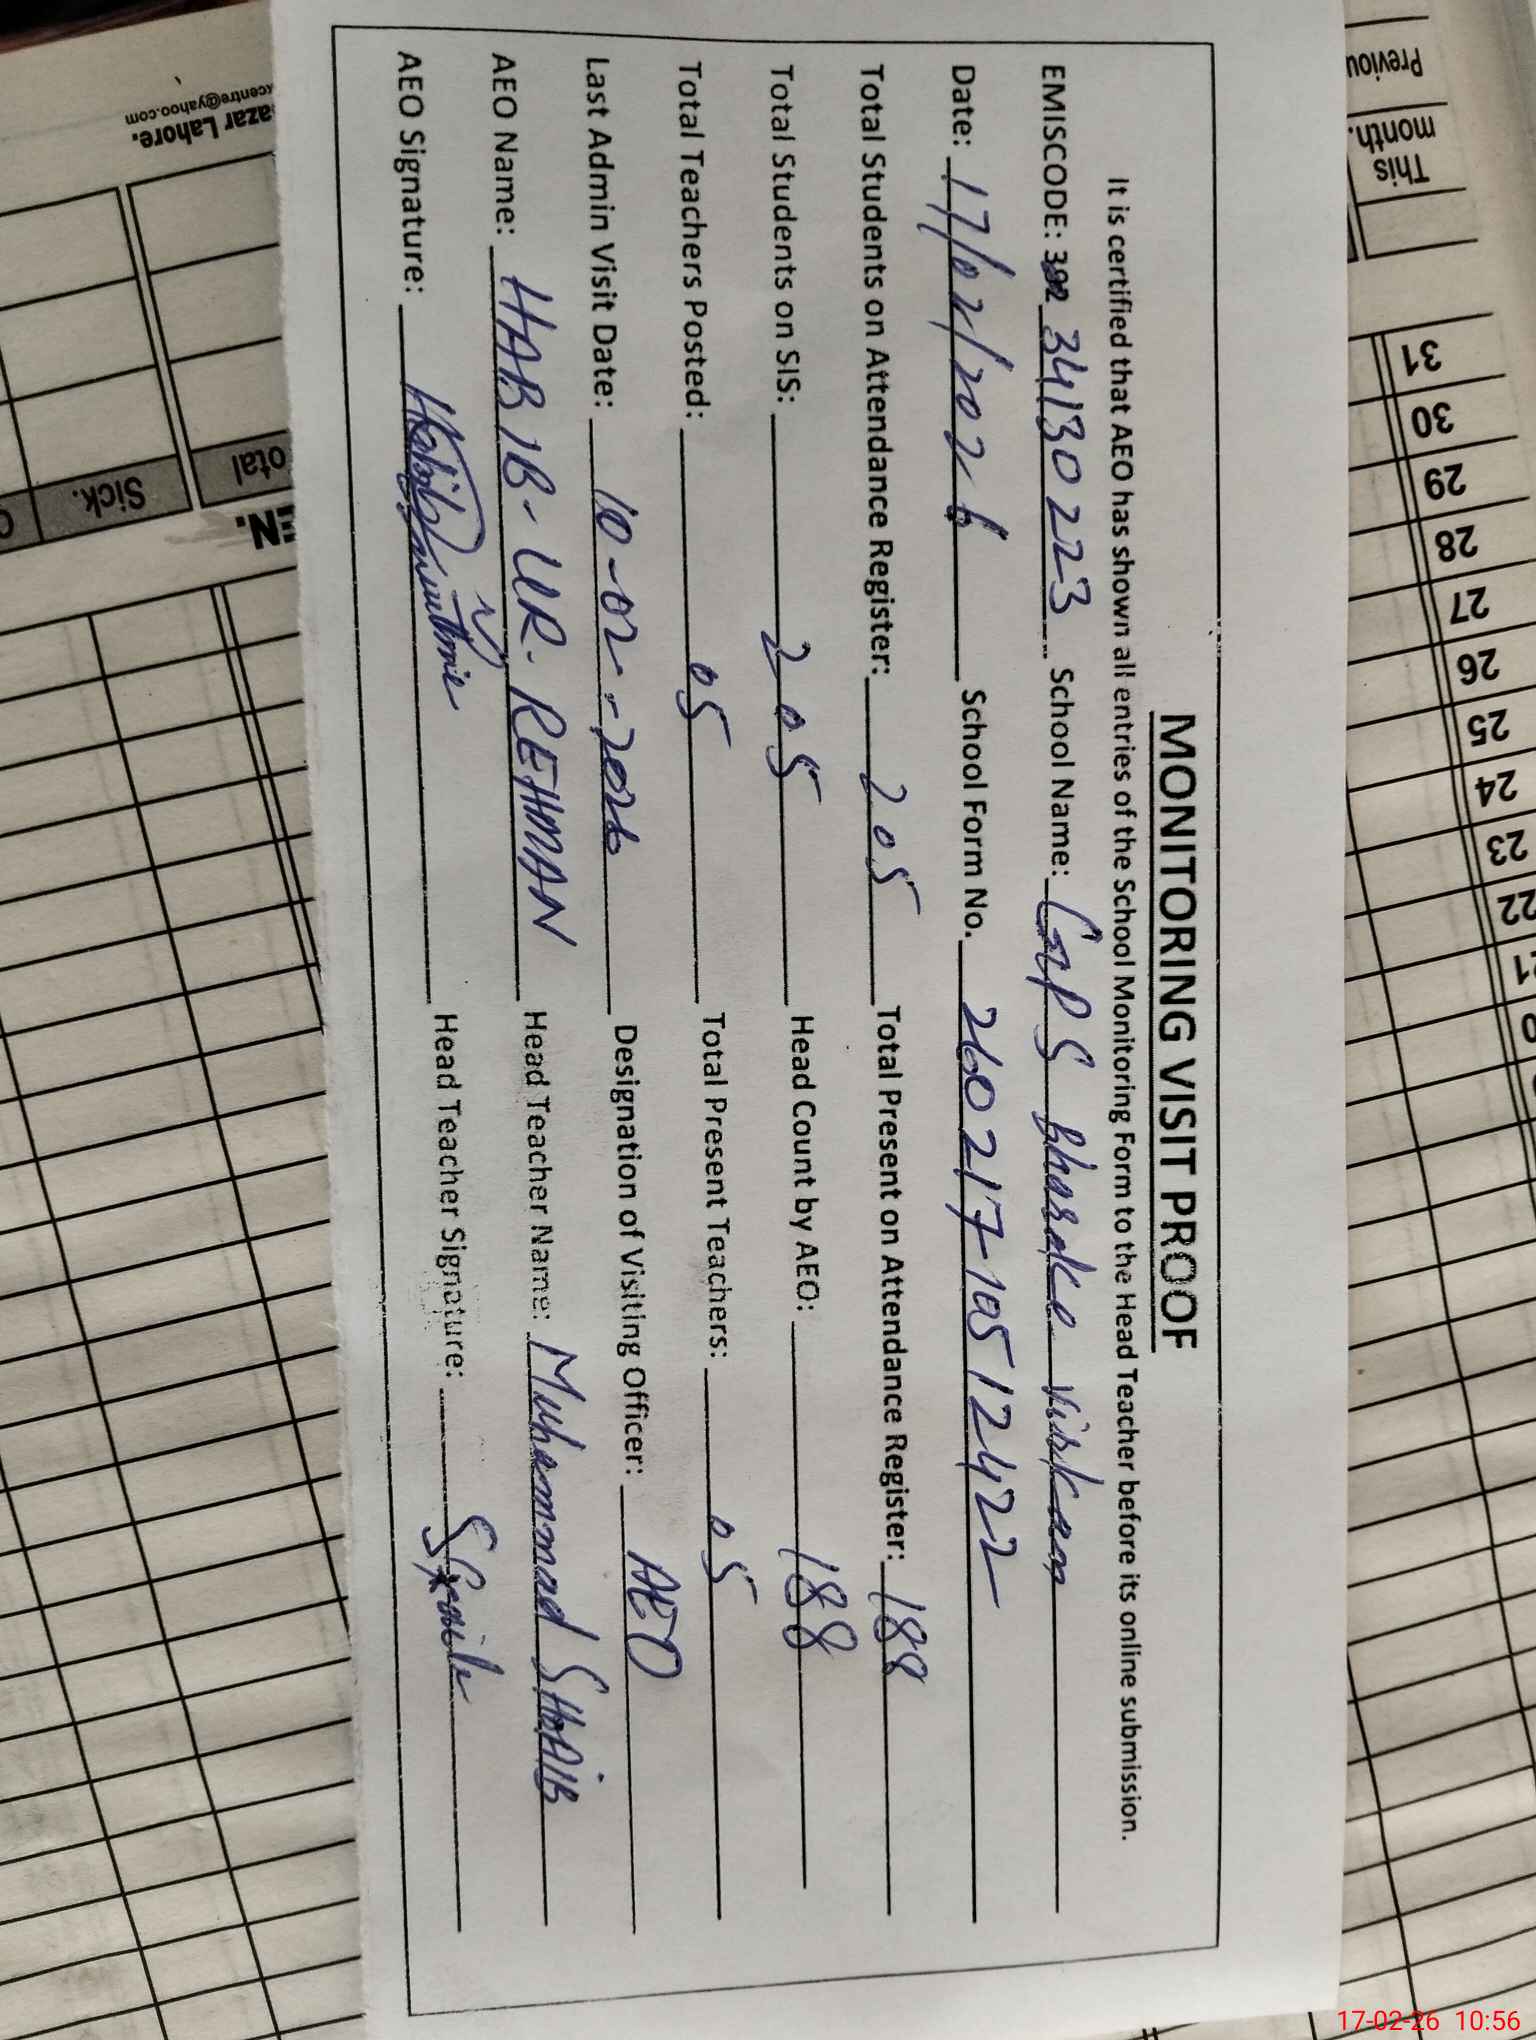 MONITORING VISIT PROOF
It is certified that AEO has shown all entries of the School Monitoring Form to the Head Teacher before its online submission.
EMISCODE: 34130223 School Name: GPS bhseke virkan
Date: 17/02/2026 School Form No. 260217-10512422
Total Students on Attendance Register: 205 Total Present on Attendance Register: 188
Total Students on SIS: 205 Head Count by AEO: 188
Total Teachers Posted: 05 Total Present Teachers: 05
Last Admin Visit Date: 10-02-2026 Designation of Visiting Officer: AEO
AEO Name: HABIB-UR-REHMAN Head Teacher Name: Muhammad SHOAIB
AEO Signature: Head Teacher Signature:
azar Lahore.
xcentre@yahoo.com
otal
Sick.
EN.
Previou
This
month.
31
30
29
28
27
26
25
24
23
22
17-02-26 10:56